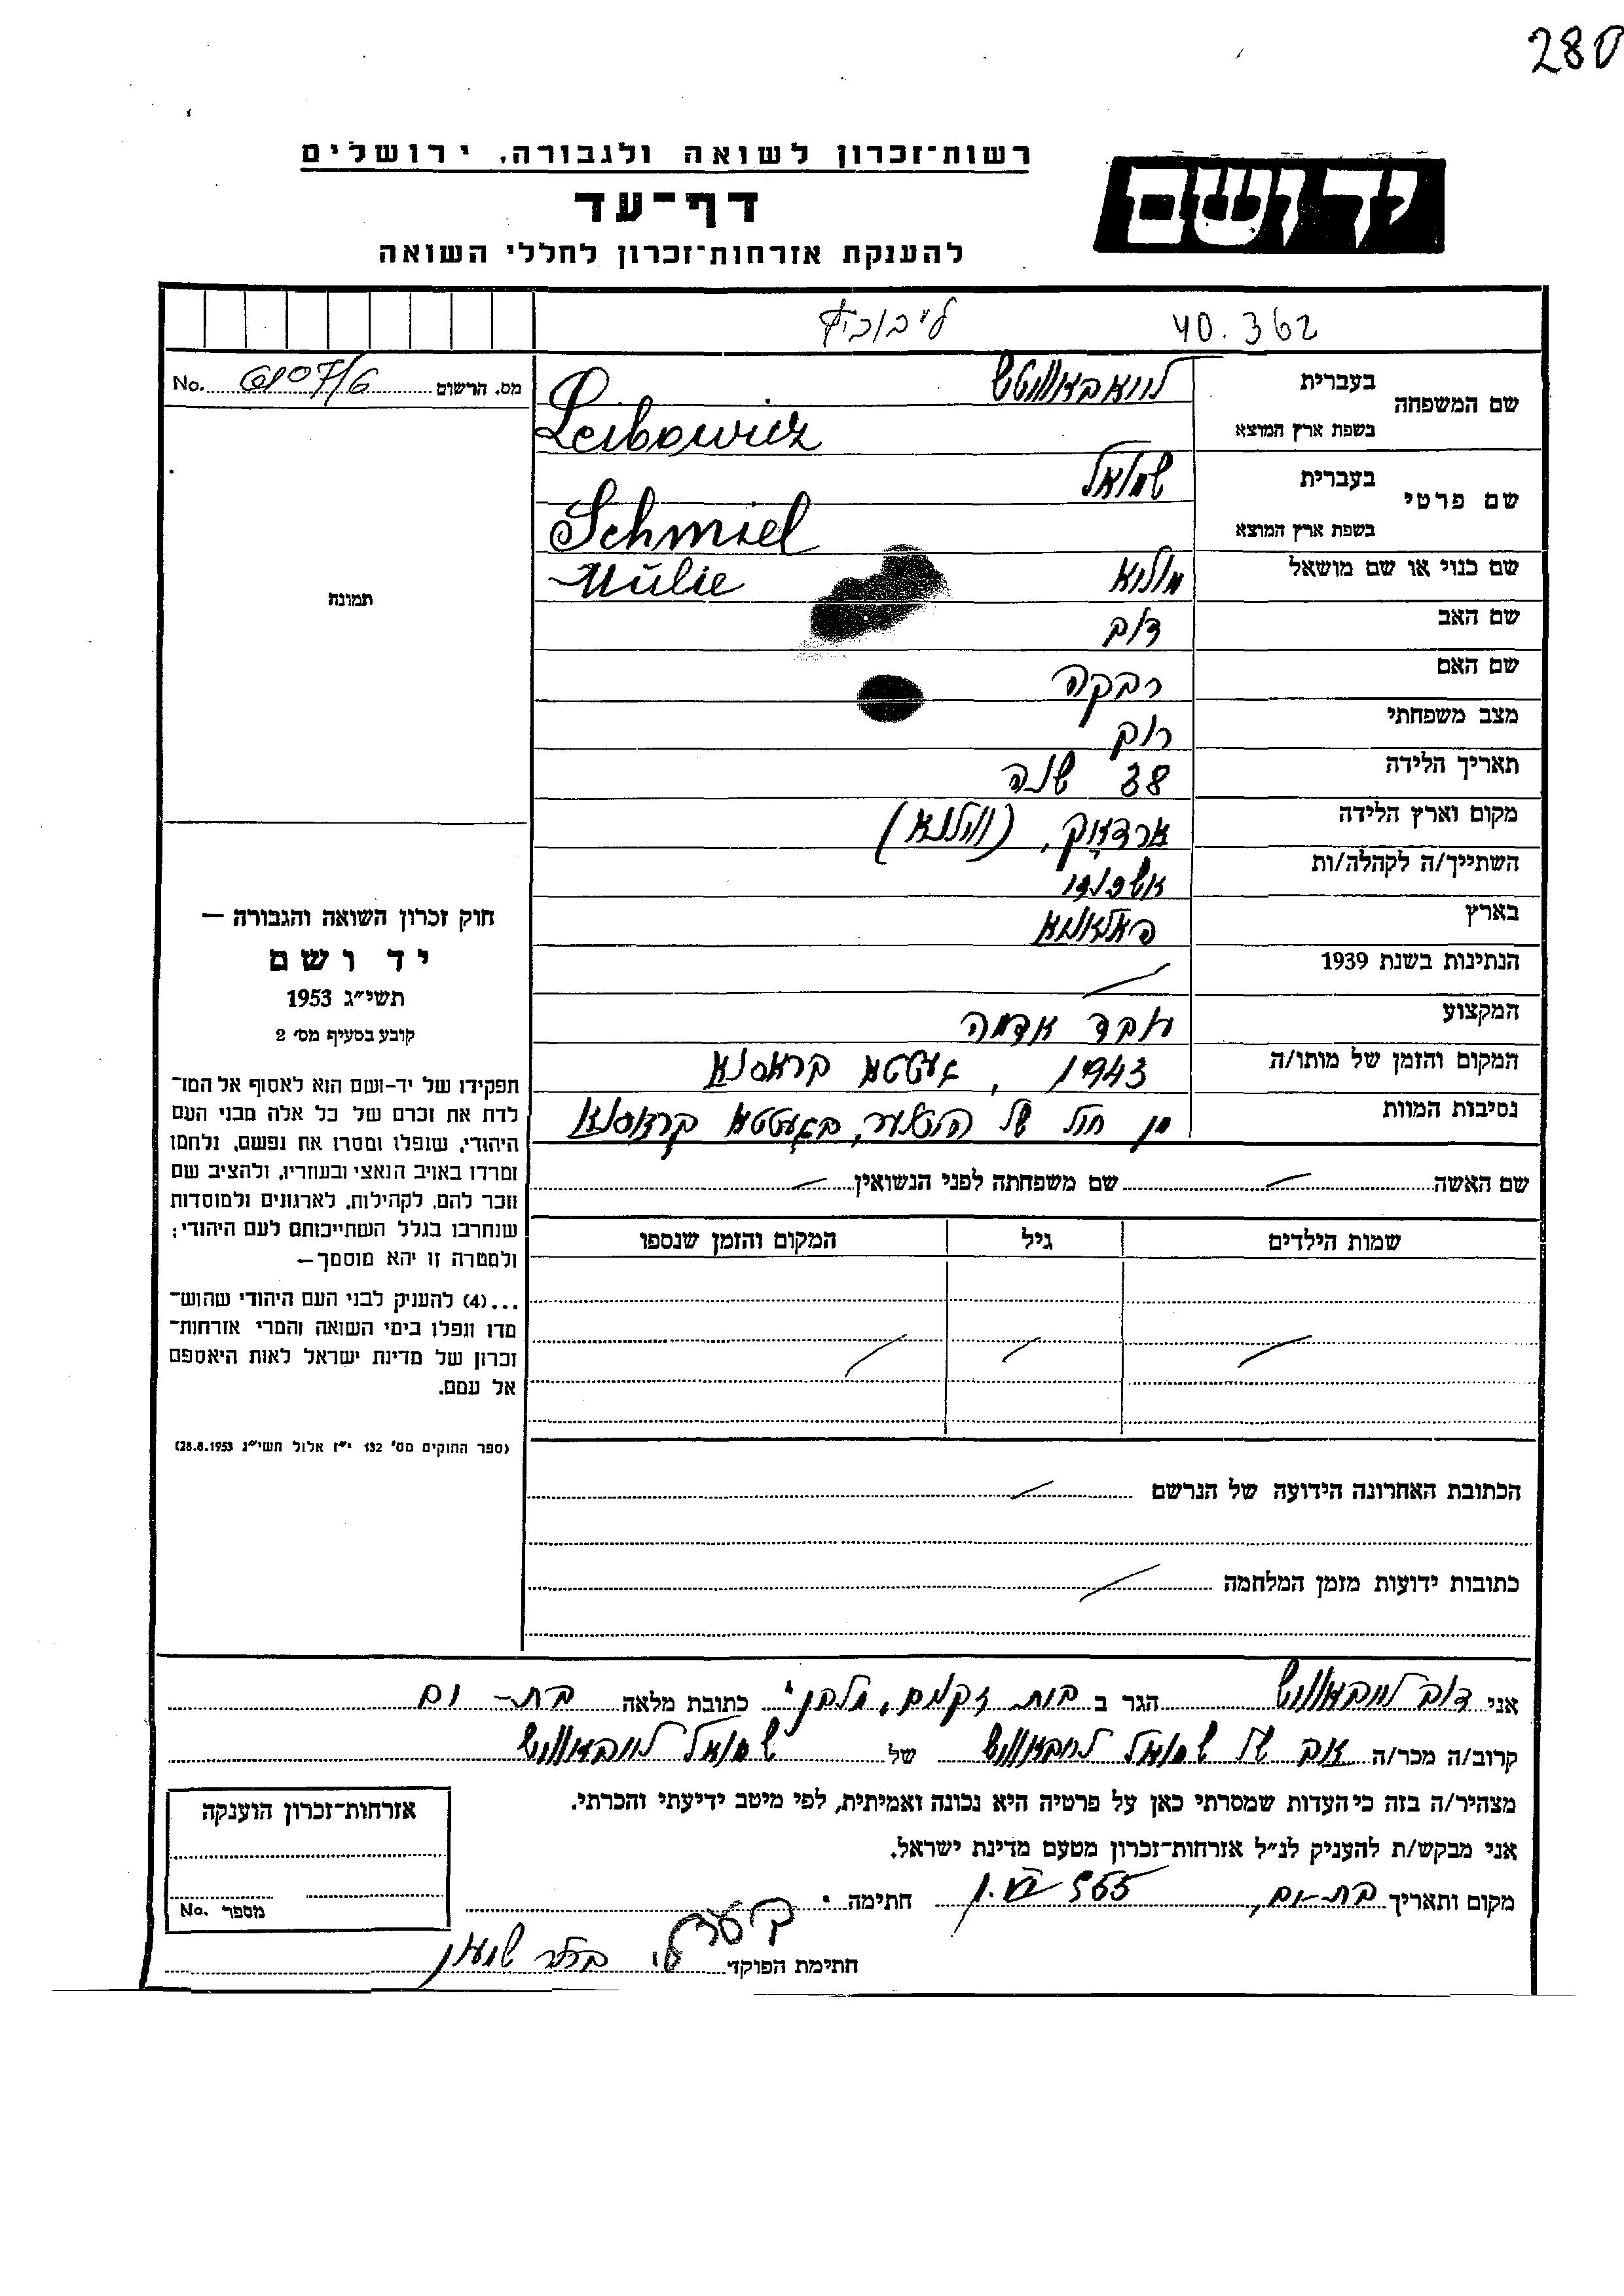 280
רשות־זכרון לשואה ולגבורה, ירושלים
יד ושם
דף־עד
להענקת אזרחות־זכרון לחללי השואה
40.362 ליבוביץ
מס. הרשום 6107/6 No.
שם המשפחה
בעברית לייבאוויטש
בשפת ארץ המוצא Leibowicz
שם פרטי
בעברית שמואל
בשפת ארץ המוצא Schmiel
שם כנוי או שם מושאל מוליא Mulie
שם האב דוב
שם האם רבקה
מצב משפחתי רוק
תאריך הלידה 38 שנה
מקום וארץ הלידה
השתייך/ה לקהלה/ות
בארץ
הנתינות בשנת 1939
המקצוע עובד אדמה
המקום והזמן של מותו/ה 1943,
נסיבות המוות מן חיל של היטלער,
שם האשה
שם משפחתה לפני הנשואין
שמות הילדים גיל המקום והזמן שנספו
הכתובת האחרונה הידועה של הנרשם
כתובות ידועות מזמן המלחמה
תמונה
חוק זכרון השואה והגבורה —
יד ושם
תשי״ג 1953
קובע בסעיף מס׳ 2
תפקידו של יד-ושם הוא לאסוף אל המו־
לדת את זכרם של כל אלה מבני העם
היהודי, שנפלו ומסרו את נפשם, נלחמו
ומרדו באויב הנאצי ובעוזריו, ולהציב שם
וזכר להם, לקהילות, לארגונים ולמוסדות
שנחרבו בגלל השתייכותם לעם היהודי;
ולמטרה זו יהא מוסמך—
...(4) להעניק לבני העם היהודי שהוש־
מדו ונפלו בימי השואה והמרי אזרחות־
זכרון של מדינת ישראל לאות היאספם
אל עמם.
(ספר החוקים מס׳ 132 י״ז אלול תשי״ג 28.8.1953)
אני דוב לייבאוויטש הגר ב בית זקנים, כתובת מלאה בת-ים
קרוב/ה מכר/ה אב של שמואל לייבאוויטש של שמואל לייבאוויטש
מצהיר/ה בזה כי העדות שמסרתי כאן על פרטיה היא נכונה ואמיתית, לפי מיטב ידיעתי והכרתי.
אני מבקש/ת להעניק לנ״ל אזרחות־זכרון מטעם מדינת ישראל.
מקום ותאריך בת-ים, חתימה
חתימת הפוקד
אזרחות־זכרון הוענקה
מספר No.